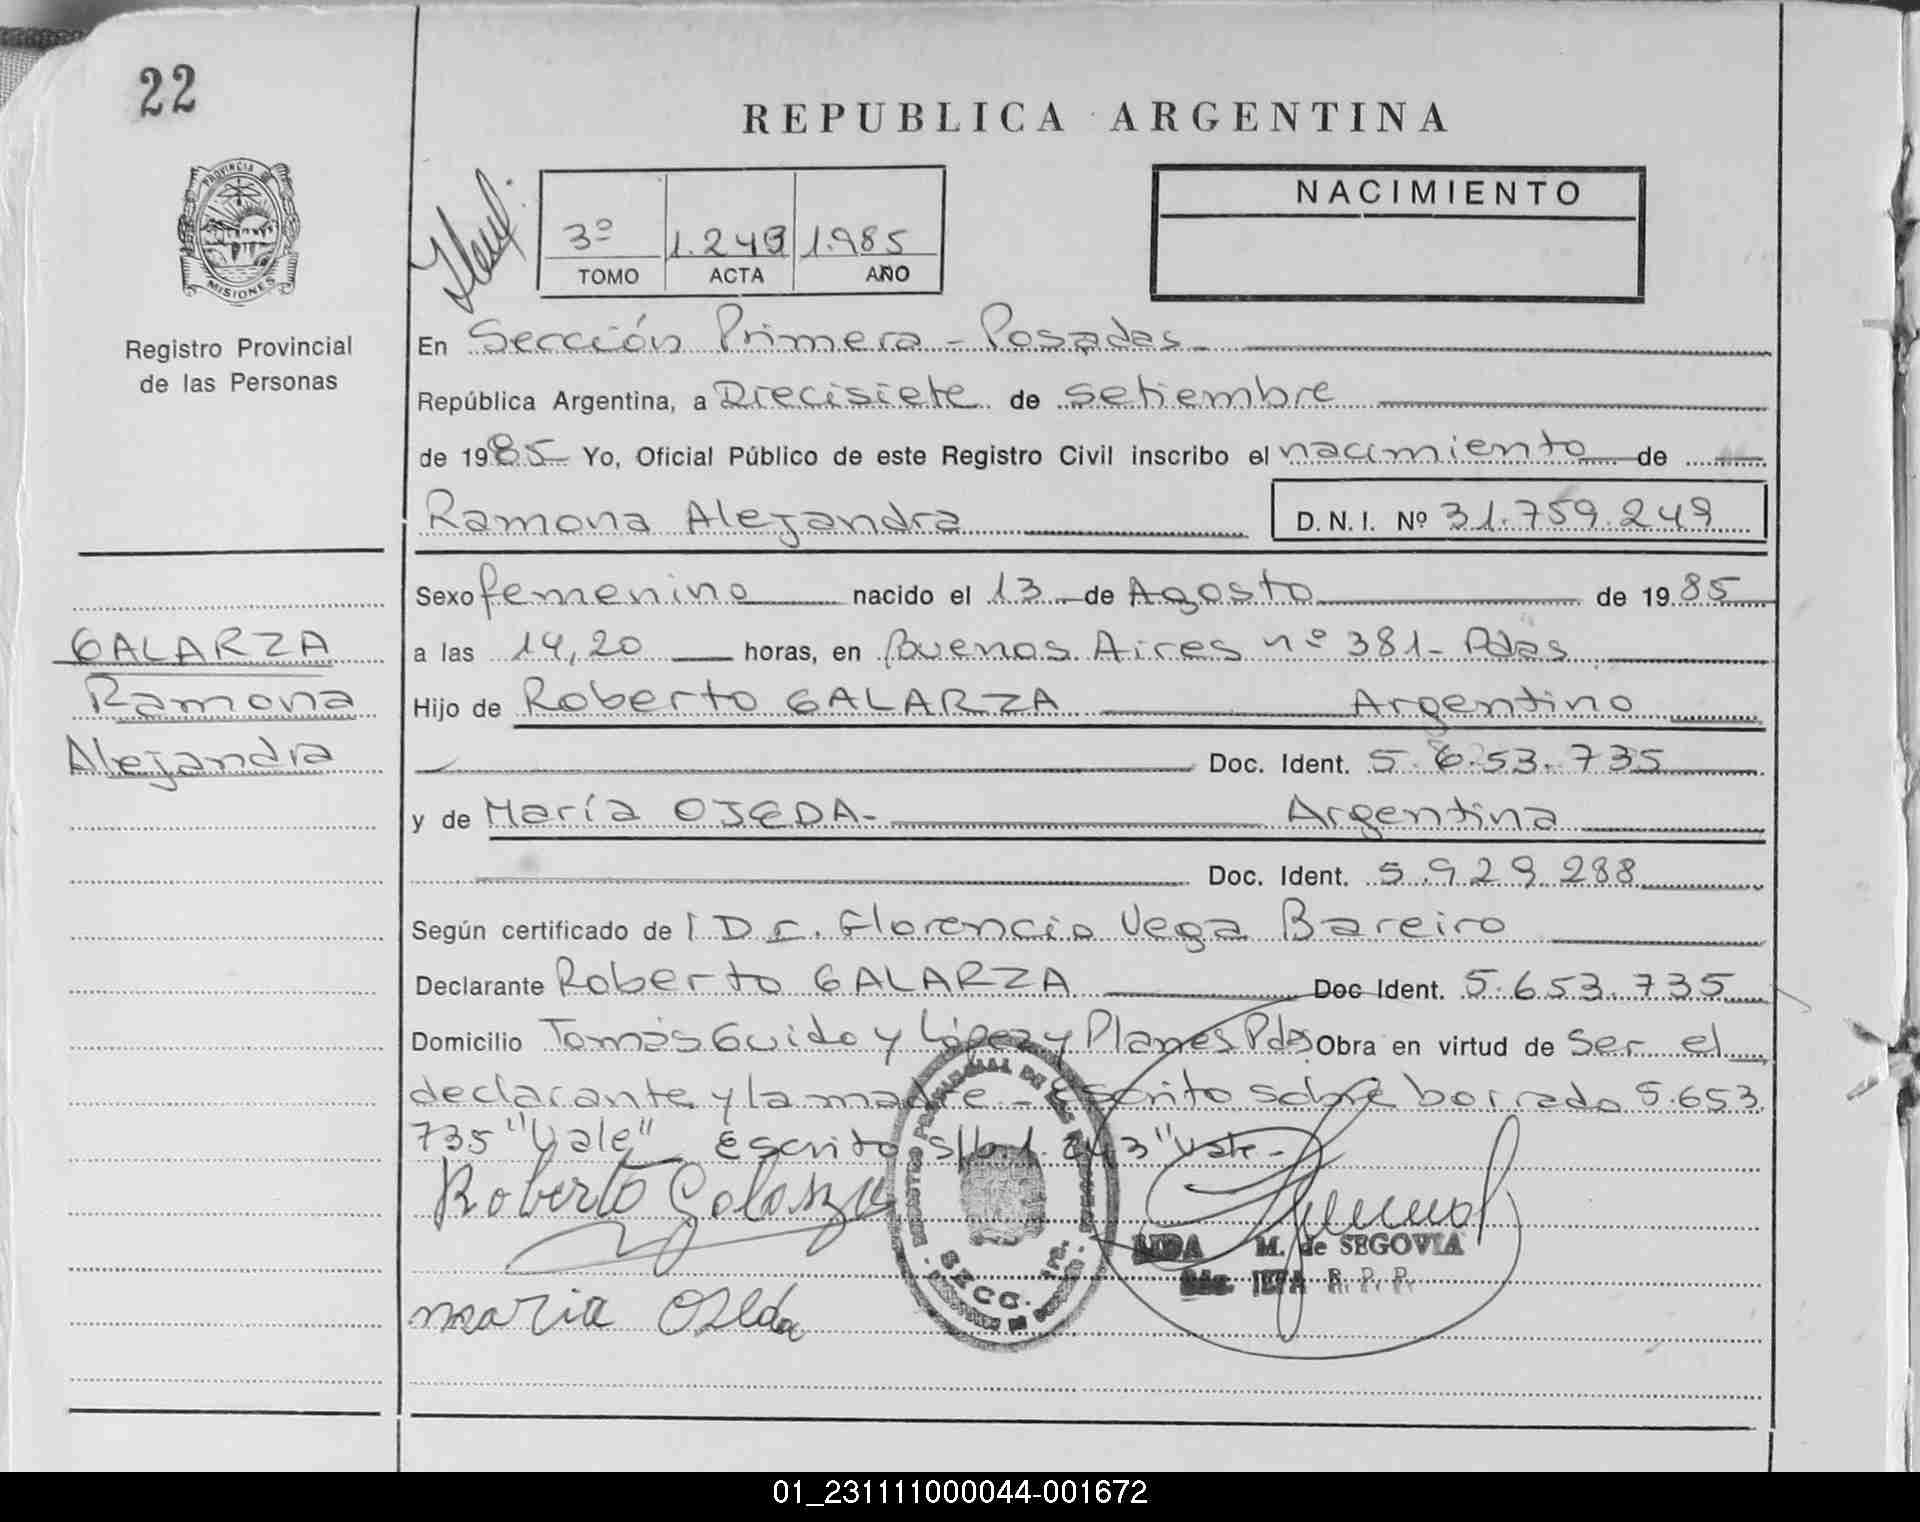 22
REPUBLICA ARGENTINA
PROVINCIA DE
MISIONES
Registro Provincial
de las Personas
3º 1.249 1.985
TOMO ACTA AÑO
NACIMIENTO
En Sección Primera - Posadas
República Argentina, a Diecisiete de setiembre
de 1985 Yo, Oficial Público de este Registro Civil inscribo el nacimiento de
Ramona Alejandra D.N.I. Nº 31.759.249
Sexo femenino nacido el 13 de Agosto de 1985
a las 14,20 horas, en Buenos Aires nº 381- Pdas
Hijo de Roberto GALARZA Argentino
Doc. Ident. 5.653.735
y de María OJEDA- Argentina
Doc. Ident. 5.929.288
Según certificado de l Dr. Florencio Vega Bareiro
Declarante Roberto GALARZA Doc Ident. 5.653.735
Domicilio Tomás Guido y López y Planes Pdas Obra en virtud de ser el
declarante y la madre - Escrito sobre borrado 5.653.
735 "Vale" Escrito s/b. "Vale-
GALARZA
Ramona
Alejandra
Roberto Galarza
maria Ojeda
M. de SEGOVIA
JEFA R. P. P.
SECC. 1ra.
01_231111000044-001672